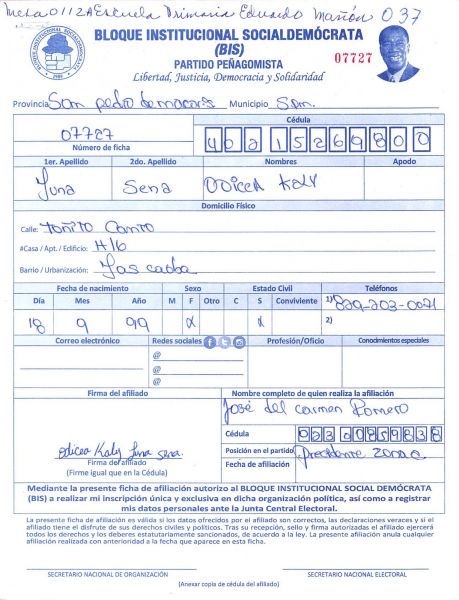 Mesa 0112A Escuela Primaria Eduardo Mañón 037
BLOQUE INSTITUCIONAL SOCIALDEMÓCRATA
(BIS)
07727
PARTIDO PEÑAGOMISTA
Libertad, Justicia, Democracia y Solidaridad
Provincia San pedro de macoris Municipio Spm.
Cédula
07727 402 15269800
Número de ficha
1er. Apellido 2do. Apellido Nombres Apodo
Luna Sena Odicea Kaly
Domicilio Físico
Calle: Toñito Canto
#Casa / Apt. / Edificio: #16
Barrio / Urbanización: Las caoba
Fecha de nacimiento Sexo Estado Civil Teléfonos
Día Mes Año M F Otro C S Conviviente 1) 829-203-0071
18 9 99 X X 2)
Correo electrónico Redes sociales Profesión/Oficio Conocimientos especiales
@
@
@
Firma del afiliado Nombre completo de quien realiza la afiliación
José del Carmen Romero
Cédula 023 00859838
Odicea Kaly Luna Sena. Posición en el partido Presidente Zona
Firma del afiliado Fecha de afiliación
(Firme igual que en la Cédula)
Mediante la presente ficha de afiliación autorizo al BLOQUE INSTITUCIONAL SOCIAL DEMÓCRATA
(BIS) a realizar mi inscripción única y exclusiva en dicha organización política, así como a registrar
mis datos personales ante la Junta Central Electoral.
La presente ficha de afiliación es válida si los datos ofrecidos por el afiliado son correctos, las declaraciones veraces y si el
afiliado tiene el disfrute de sus derechos civiles y políticos. Tras su recepción, sello y firma autorizadas el afiliado ejercerá
todos los derechos y los deberes estatutariamente sancionados, de acuerdo a la ley. La presente afiliación anula cualquier
afiliación realizada con anterioridad a la fecha que aparece en esta ficha.
SECRETARIO NACIONAL DE ORGANIZACIÓN SECRETARIO NACIONAL ELECTORAL
(Anexar copia de cédula del afiliado)